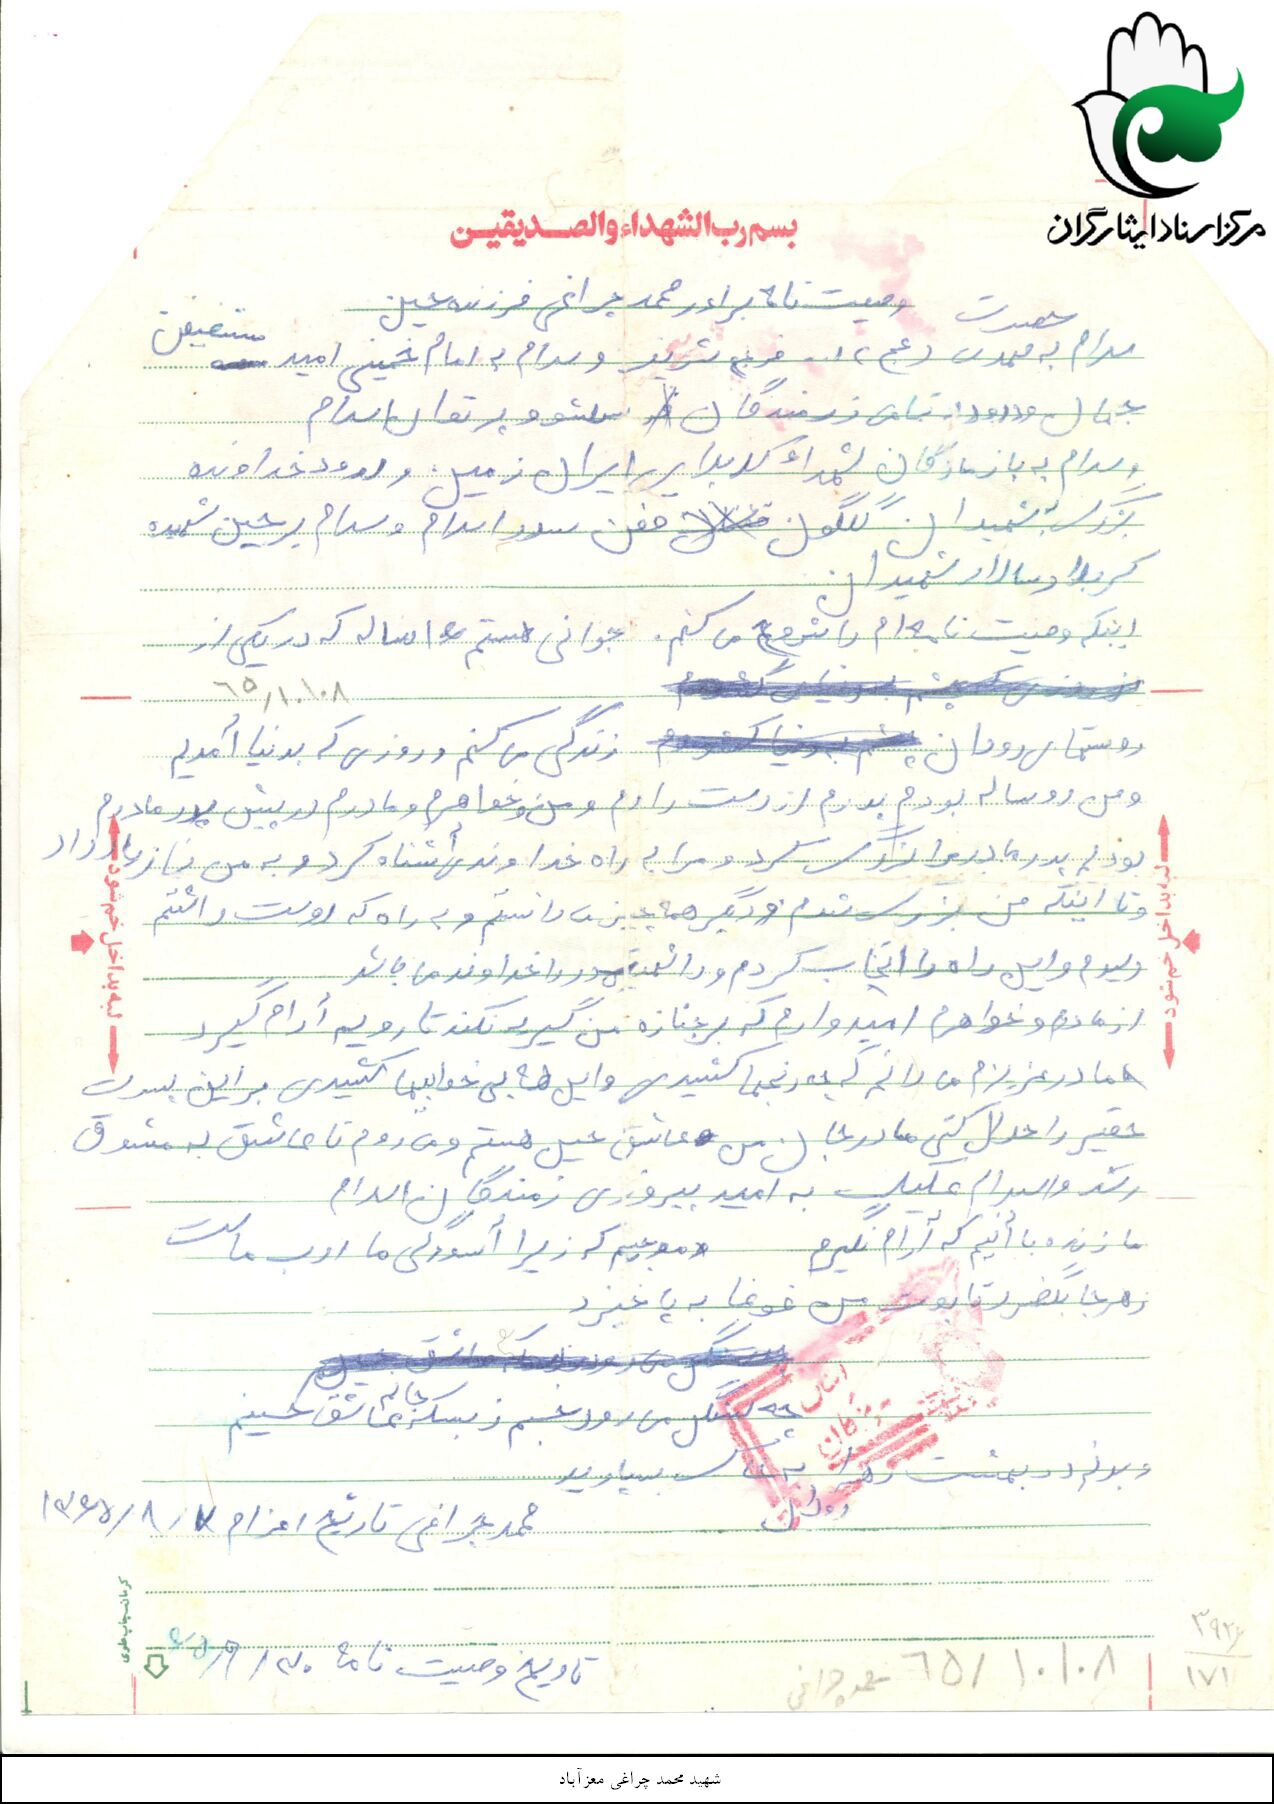 مرکز اسناد ایثارگران
بسم رب الشهداء والصدیقین
وصیت نامه برادر محمد چراغی فرزند حسین
سلام به حضرت مهدی (عج) و سلام به امام خمینی امید مستضعفین
جهان و درود به تمامی رزمندگان اسلام
و سلام به بازماندگان شهداء کربلای ایران زمین و درود خداوند
بزرگ به شهیدان گلگون کفن اسلام و سلام بر حسین شهید
کربلا و سالار شهیدان
اینک وصیت نامه ام را شروع می کنم. جوانی هستم ساله که در یکی از
۶۵/۱۰/۰۸
روستاهای رودان زندگی می کنم و روزی که بدنیا آمدیم
و من دو ساله بودم پدرم از دست دادم و من و خواهرم و مادرم در پیش پدر مادرم
بودیم پدر مادرم مرا بزرگ کرد و مرا به راه خداوند آشنا کرد و به من نماز یاد داد
و تا اینکه من بزرگ شدم و دیگر همه چیز می دانستم و به راه که دوست داشتم
و این راه را انتخاب کردم و خداوند می باشد
از مادرم و خواهرم امیدوارم که بر جنازه من گریه نکند تا روحم آرام گیرد
مادر عزیزم می دانم که چه رنجها کشیدی و این همه بی خوابیها کشیدی بر این پسرت
حقیر را حلال کنی مادر جان من عاشق حسین هستم و می روم تا عاشق به معشوق
رسد والسلام علیک به امید پیروزی رزمندگان اسلام
ما زنده به آنیم که آرام نگیریم موجیم که زیرا آسودگی ما ماست
زهرجا بگذرد تابوت من غوغا به پا خیزد
چه سنگین می رود جسمم ز بسکه عاشق حسینم
بهشت زهرا به خاک بسپارید
رودان
محمد چراغی تاریخ اعزام ۱۳۶۵/۸/۷
تاریخ وصیت نامه ۶۵/۹/۳۰
۶۵/۱۰/۰۸ محمد چراغی
۱۷۱
لبه بداخل خم شود
لبه بداخل خم شود
شهید محمد چراغی معزآباد